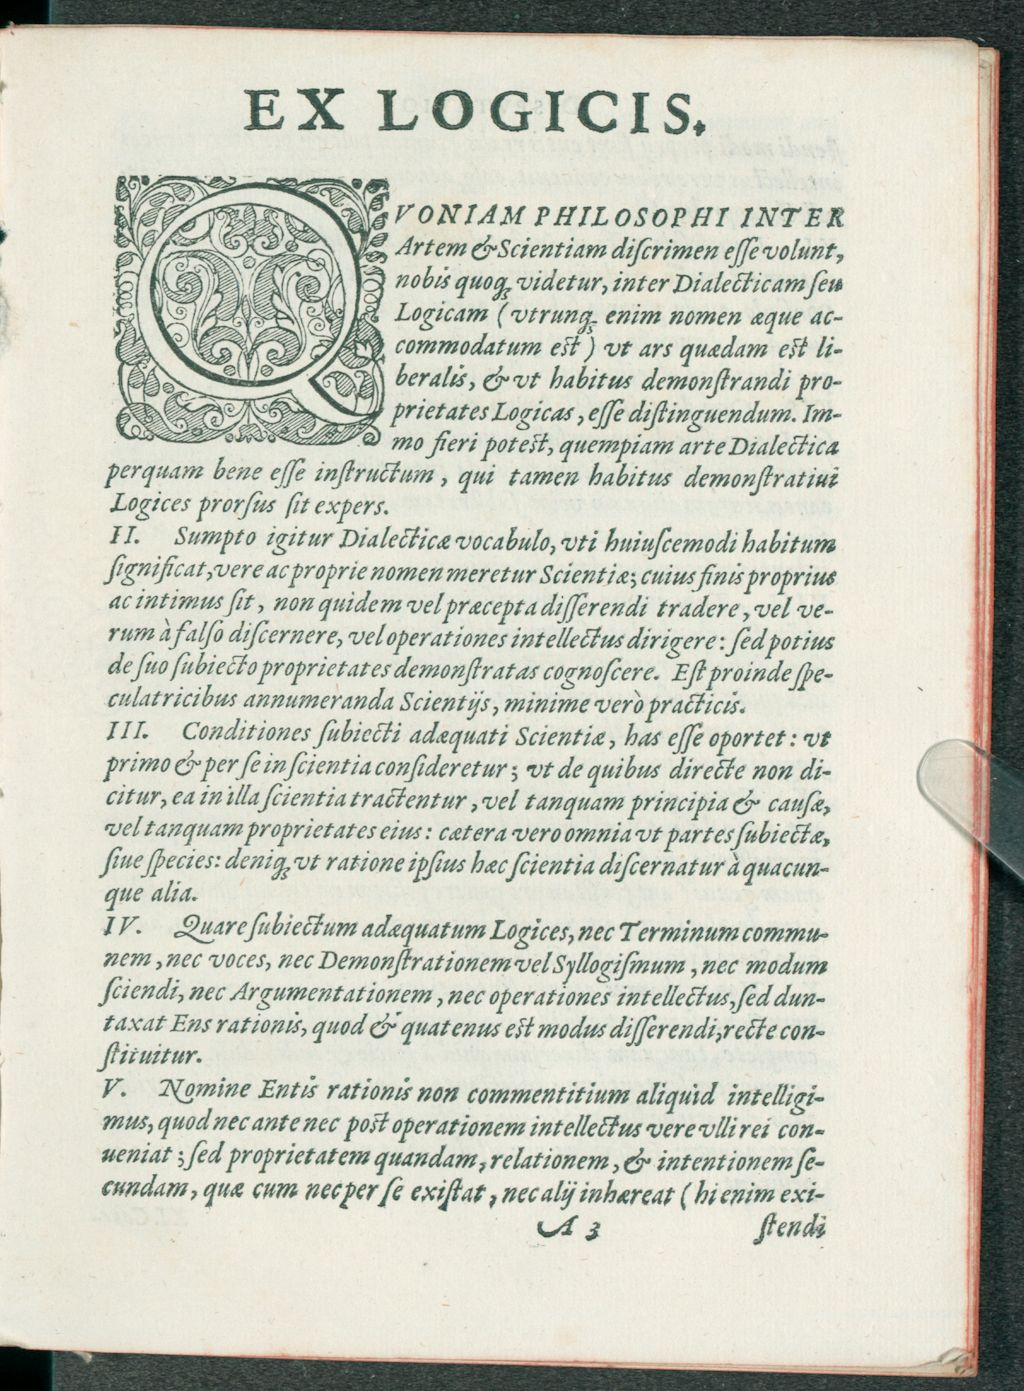 EX LOGICIS.
QVONIAM PHILOSOPHI INTER
Artem & Scientiam diſcrimen eſſe volunt,
nobis quoq; videtur, inter Dialecticam ſeu
Logicam (vtrunq; enim nomen æque ac-
commodatum eſt) vt ars quædam eſt li-
beralis, & vt habitus demonſtrandi pro-
prietates Logicas, eſſe diſtinguendum. Im-
mo fieri poteſt, quempiam arte Dialectica
perquam bene eſſe inſtructum, qui tamen habitus demonſtratiui
Logices prorſus ſit expers.
II. Sumpto igitur Dialecticæ vocabulo, vti huiuſcemodi habitum
ſignificat, vere ac proprie nomen meretur Scientiæ; cuius finis proprius
ac intimus ſit, non quidem vel præcepta diſſerendi tradere, vel ve-
rum à falſo diſcernere, vel operationes intellectus dirigere: ſed potius
de ſuo ſubiecto proprietates demonſtratas cognoſcere. Eſt proinde ſpe-
culatricibus annumeranda Scientijs, minime verò practicis.
III. Conditiones ſubiecti adæquati Scientiæ, has eſſe oportet: vt
primo & per ſe in ſcientia conſideretur; vt de quibus directe non di-
citur, ea in illa ſcientia tractentur, vel tanquam principia & cauſæ,
vel tanquam proprietates eius: cætera vero omnia vt partes ſubiectæ,
ſiue ſpecies: deniq; vt ratione ipſius hæc ſcientia diſcernatur à quacun-
que alia.
IV. Quare ſubiectum adæquatum Logices, nec Terminum commu-
nem, nec voces, nec Demonſtrationem vel Syllogiſmum, nec modum
ſciendi, nec Argumentationem, nec operationes intellectus, ſed dun-
taxat Ens rationis, quod & quatenus eſt modus diſſerendi, recte con-
ſtituitur.
V. Nomine Entis rationis non commentitium aliquid intelligi-
mus, quod nec ante nec poſt operationem intellectus vere vlli rei con-
ueniat; ſed proprietatem quandam, relationem, & intentionem ſe-
cundam, quæ cum nec per ſe exiſtat, nec alij inhæreat (hi enim exi-
A 3 ſtendi